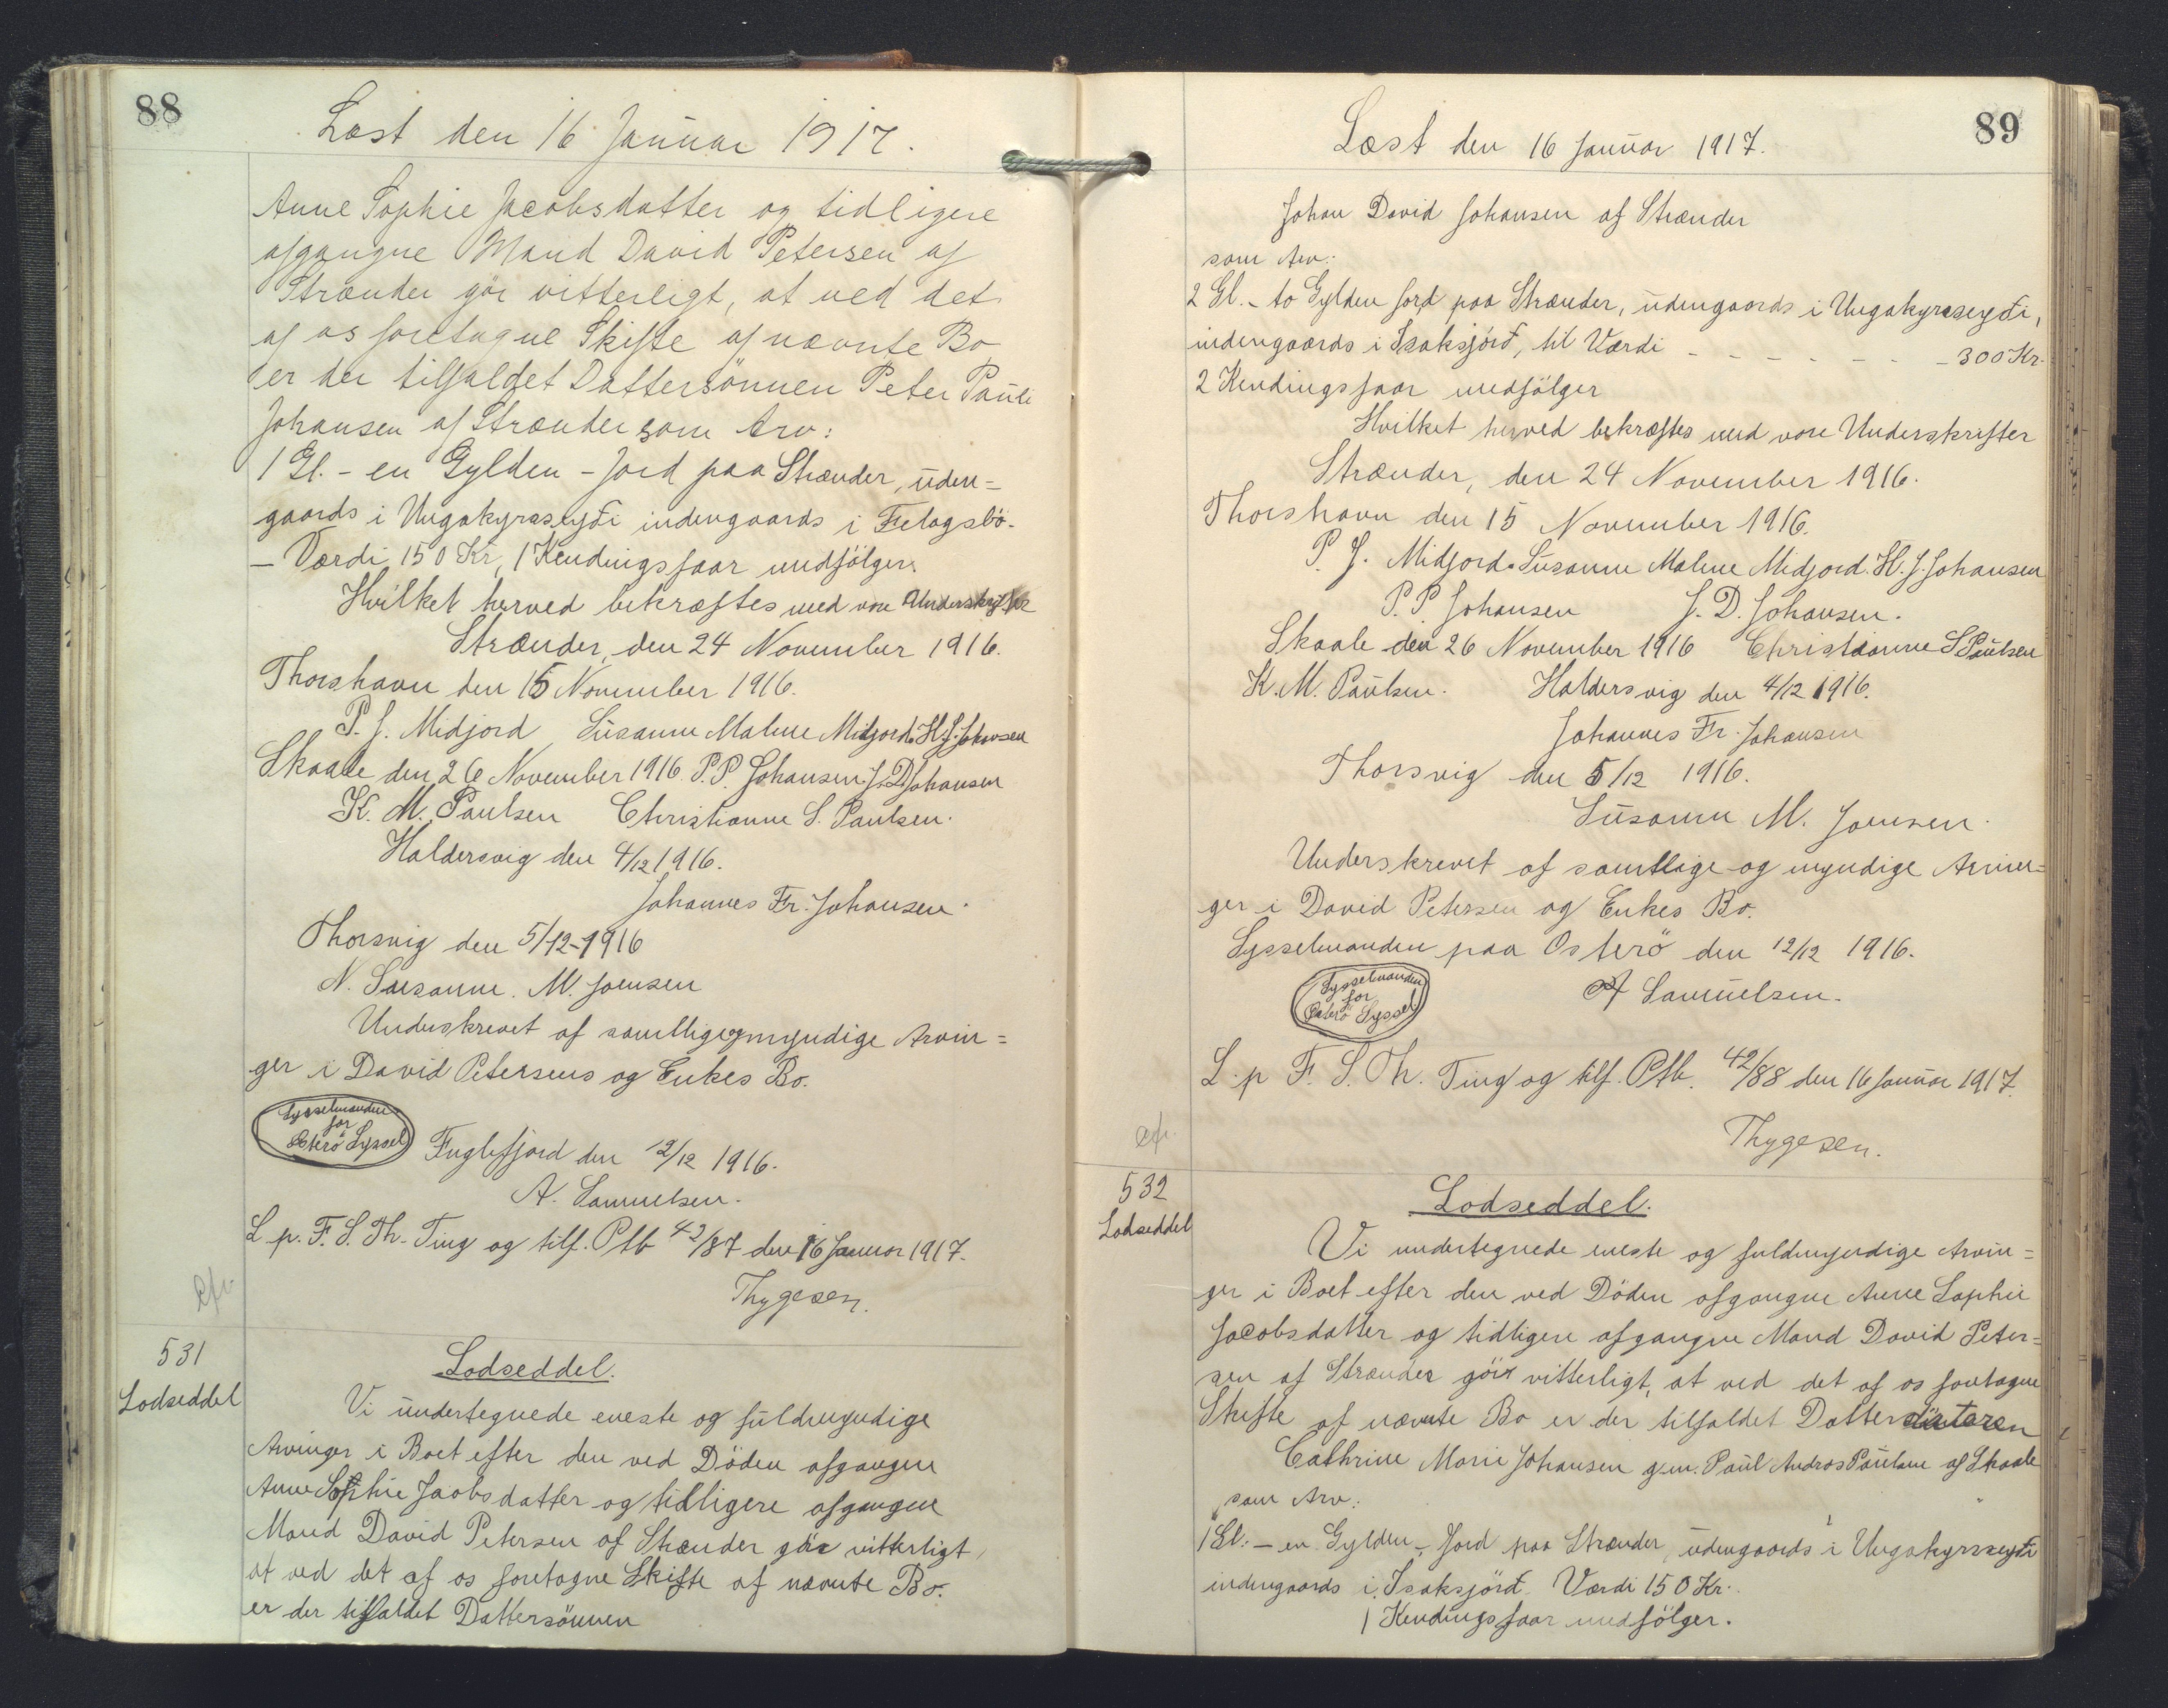 88
Læst den 16 Januar 1917.
Anne Sophie Jacobsdatter og tidligere
afgangne Mand David Petersen af
Strænder gör vitterligt, at ved det
af os foretagne Skifte af nævnte Bo
er der tilfaldet Dattersönnen Peter Pauli
Johansen af Strænder som Arv:
1 Gl. - en Gylden - Jord paa Strænder, uden=
gaards i Ungakyraseyði indengaards i Felagsbö.
- Værdi 150 Kr, 1 Kendingsfaar medfölger.
Hvilket herved bekræftes med vore Underskrifter
Strænder, den 24 November 1916.
Thorshavn den 15 November 1916.
P. J. Midjord Susanne Malene Midjord. H. J. Johansen
Skaale den 26 November 1916. P. P. Johansen. J. D. Johansen
K. M. Paulsen Christianne S. Paulsen.
Haldersvig den 4/12 1916.
Johannes Fr. Johansen.
Thorsvig den 5/12-1916
N. Susanne. M. Joensen
Underskrevet af samtlige og myndige Arvin=
ger i David Petersens og Enkes Bo.
Sysselmanden
for
Österö Syssel
Fuglefjord den 12/12 1916.
A. Samuelsen.
L. p. F. S. Th. Ting og tilf. Ptb 42/87 den 16 Januar 1917.
Thygesen.
531
Lodseddel
Lodseddel.
Vi undertegnede eneste og fuldmyndige
Arvinger i Boet efter den ved Döden afgangne
Anne Sophie Jacobsdatter og tidligere afgangne
Mand David Petersen af Strænder gör vitterligt,
at ved det af os foretagne Skifte af nævnte Bo.
er der tilfaldet Dattersönnen
89
Læst den 16 Januar 1917.
Johan David Johansen af Strænder
som Arv:
2 Gl. - to Gylden Jord paa Strænder, udengaards i Ungakyraseyði,
indengaards i Isaksjörð, til Værdi - - - - - - - 300 Kr.
2 Kendingsfaar medfölger
Hvilket herved bekræftes med vore Underskrifter
Strænder, den 24 November 1916.
Thorshavn den 15 November 1916.
P. J. Midjord. Susanne Malene Midjord. H. J. Johansen
P. P. Johansen J. D. Johansen.
Skaale den 26 November 1916 Christianne S Paulsen
K. M. Paulsen. Haldersvig den 4/12 1916.
Johannes Fr. Johansen
Thorsvig den 5/12 1916.
Susanne M. Joensen.
Underskrevet af samtlige og myndige Arvin=
ger i David Petersen og Enkes Bo.
Sysselmanden paa Osterö den 12/12 1916.
Sysselmanden
for
Österö Syssel
A Samuelsen.
L. p F. S. Th. Ting og tilf. Ptb. 42/88 den 16 Januar 1917.
Thygesen.
532
Lodseddel
Lodseddel.
Vi undertegnede eneste og fuldmyndige Arvin=
ger i Boet efter den ved Döden afgangne Anne Sophie
Jacobsdatter og tidligere afgangne Mand David Peter=
sen af Strænder gör vitterligt, at ved det af os foretagne
Skifte af nævnte Bo er der tilfaldet Datterdatteren
Cathrine Marie Johansen g. m. Paul Andras Paulsen af Skaale
som Arv:
1 Gl. - en Gylden - Jord paa Strænder, udengaards i Ungakyraseyði
indengaards i Isaksjörð. Værdi 150 Kr.
1 Kendingsfaar medfölger.